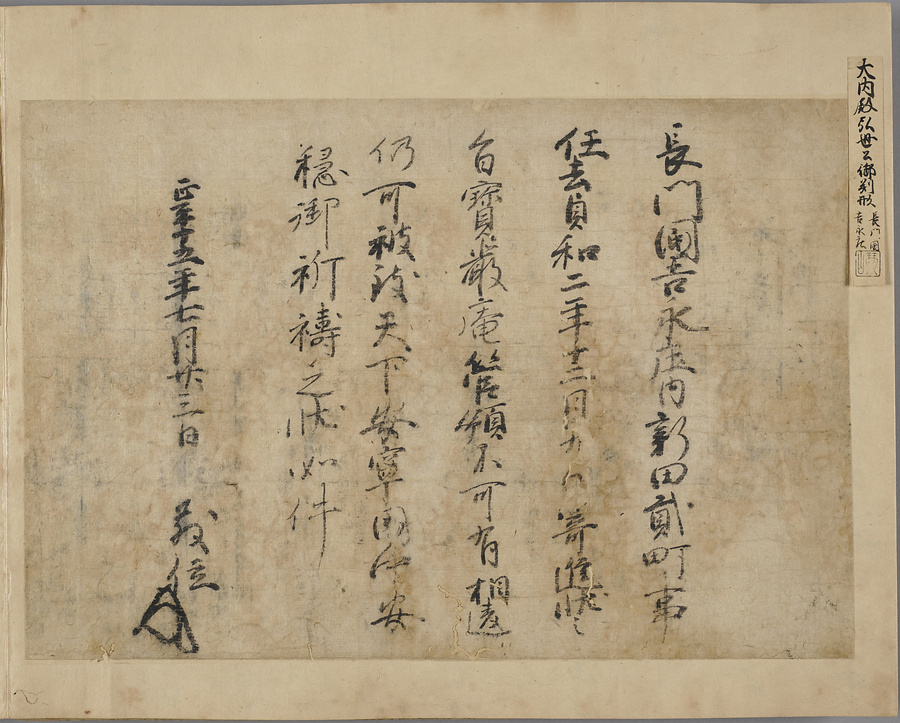 大内殿弘世公御判形
長門国
吉永庄
長門國吉永庄内新田貳町事
任去貞和二年十二月九日寄進状之
旨寶嚴庵管領不可有相違
仍可被致天下安寧國中安
穏御祈禱之状如件
正平十五年七月廿三日 散位